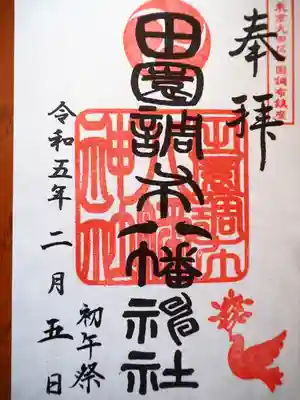 奉拝
東京大田区田園調布鎮座
田園調布八幡神社
田園調布八幡神社
初午祭
令和五年二月五日